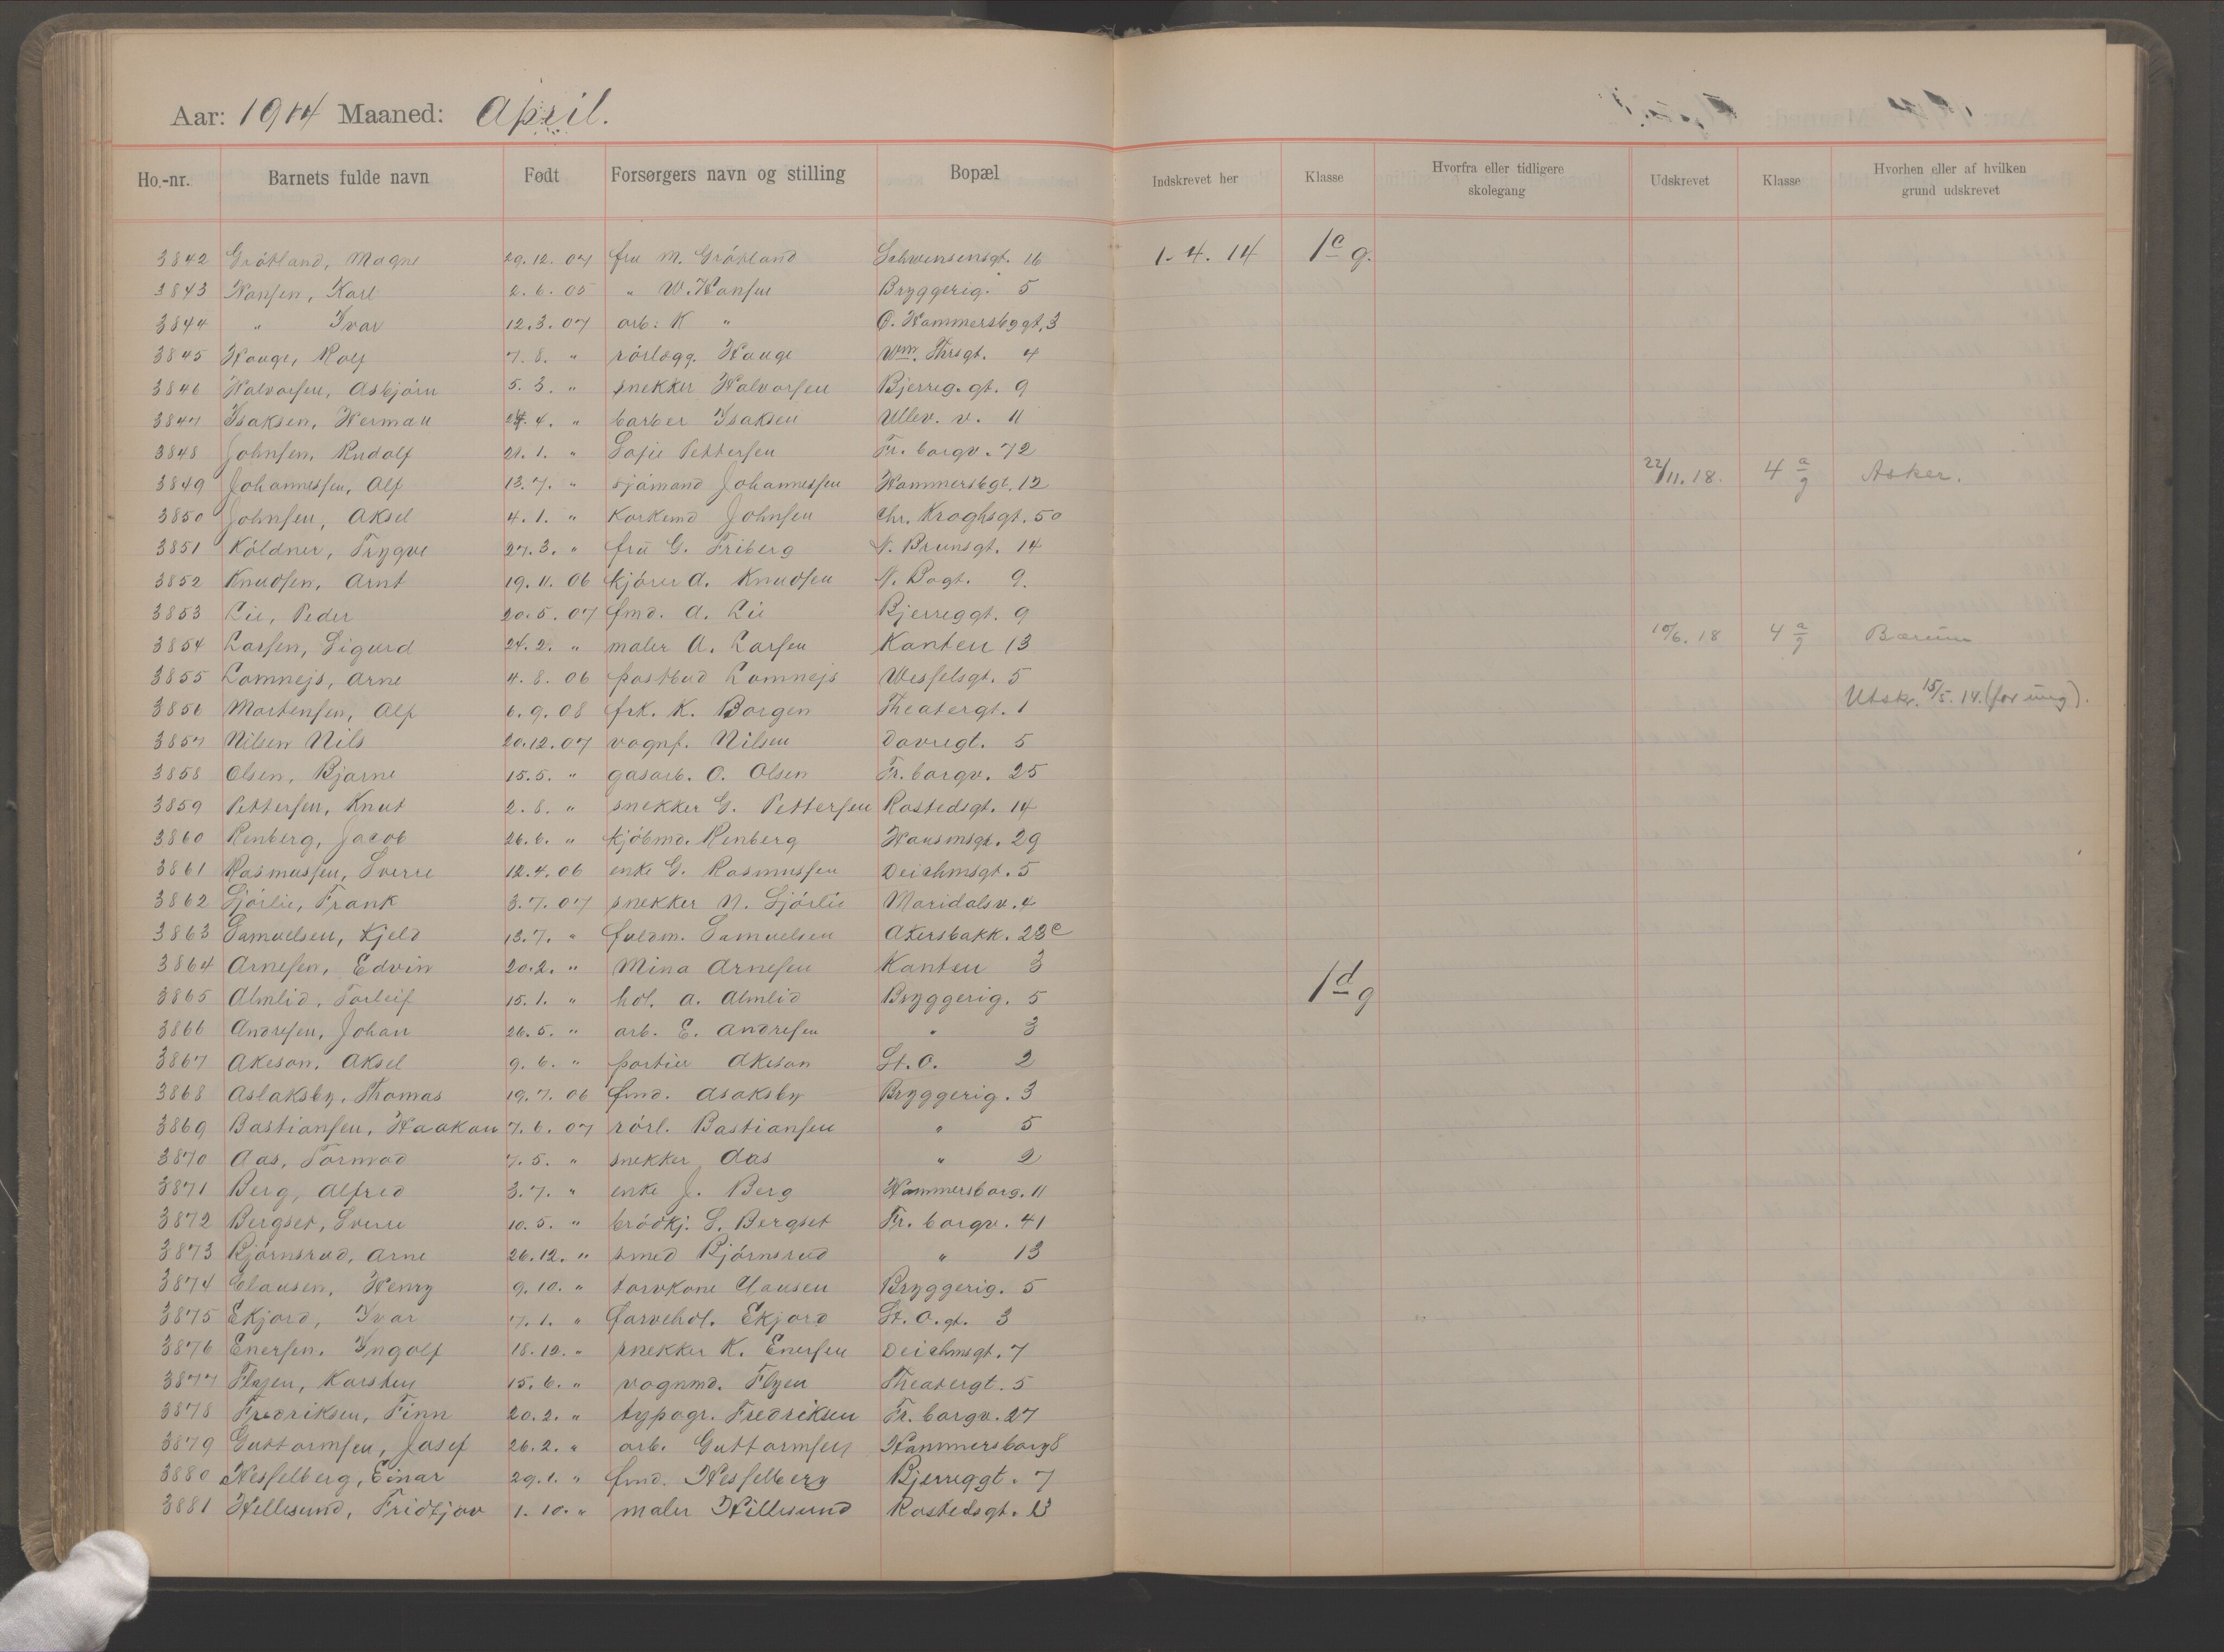 Aar: 1914 Maaned: April.
Ho.-nr. Barnets fulde navn Født Forsørgers navn og stilling Bopæl Indskrevet her Klasse Hvorfra eller tidligere skolegang Udskrevet Klasse Hvorhen eller af hvilken grund udskrevet
3842 Gråtland, Magne 29.12.07 fru M. Gråtland Schwensensgt. 16 1.4.14 1c g.
3843 Hansen, Karl 2.6.05 " W. Hansen Bryggerig. 5
3844 " Ivar 12.3.07 arb. K " O. Hammersbggt. 3
3845 Hauge, Rolf 7.8. " rörlægg. Hauge Wm. Thrsgt. 4
3846 Halvorsen, Asbjörn 5.3. " snekker Halvorsen Bjerreg.gt. 9
3847 Isaksen, Herman 4. " barber Isaksen Ullev. v. 11
3848 Johnsen, Rudolf 21.1. " Sofie Pettersen Fr.borgv. 72
3849 Johannessen, Alf 13.7. " sjömand Johannessen Hammersbgt. 12 22/11.18. 4 a/g Asker.
3850 Johnsen, Aksel 4.1. " Korkemd Johnsen Chr. Kroghsgt. 50
3851 Köldner, Trygve 27.3. " fru G. Friberg N. Brunsgt. 14
3852 Knudsen, Arnt 19.11.06 kjörer A. Knudsen N. Bogt. 9.
3853 Lie, Peder 20.5.07 fmd. A. Lie Bjerreggt. 9
3854 Larsen, Sigurd 24.2. " maler A. Larsen Kanten 13 10/6.18 4 a/g Bærum
3855 Lomnejs, Arne 4.8.06 postbud Lomnejs Wesselsgt. 5
3856 Mortensen, Alf 6.9.08 frk. K. Borgen Theatergt. 1 Utskr. 15/5.14. (for ung).
3857 Nilsen Nils 20.12.07 vognf. Nilsen Dovregt. 5
3858 Olsen, Bjarne 15.5. " gasarb. O. Olsen Fr.borgv. 25
3859 Pettersen, Knut 2.8. " snekker G. Pettersen Rostedsgt. 14
3860 Renberg, Jacob 26.6. " kjöbmd. Renberg Hausmsgt. 29
3861 Rasmussen, Sverre 12.4.06 enke G. Rasmussen Deichmsgt. 5
3862 Sjörlie, Frank 3.7.07 snekker N. Sjörlie Maridalsv. 4
3863 Samuelsen, Kjeld 13.7. " fuldm. Samuelsen Akersbakk. 23c
3864 Arnesen, Edvin 20.2. " Mina Arnesen Kanten 3
3865 Almlid, Torleif 15.1. " hdl. A. Almlid Bryggerig. 5 1d g
3866 Andresen, Johan 26.5. " arb. E. Andresen " 3
3867 Akeson, Aksel 9.6. " portier Akeson St. O. 2
3868 Aslaksby, Thomas 19.7.06 fmd. Asaksby Bryggerig. 3
3869 Bastiansen, Haakon 7.6.07 rörl. Bastiansen " 5
3870 Aas, Tormod 7.5. " snekker Aas " 2
3871 Berg, Alfred 3.7. " enke J. Berg Hammersborg. 11
3872 Bergset, Sverre 10.5. " brödkj. S. Bergset Fr.borgv. 41
3873 Björnsrud, Arne 26.12. " smed Björnsrud " 13
3874 Clausen, Henry 9.10. " torvkone Clausen Bryggerig. 5
3875 Ekjord, Ivar 7.1. " farvehdl. Ekjord St. O. gt. 3
3876 Enersen, Ingolf 18.12. " snekker K. Enersen Deichmsgt. 7
3877 Flyen, Karsten 15.6. " vognmd. Flyen Theatergt. 5
3878 Fredriksen, Finn 20.2. " typogr. Fredriksen Fr.borgv. 27
3879 Guttormsen, Josef 26.2. " arb. Guttormsen Hammersborg 8
3880 Hesselberg, Einar 29.1. " fmd. Hesselberg Bjerreggt. 7
3881 Hellesund, Fridtjov 1.10. " maler Hillesund Rostedsgt. 13